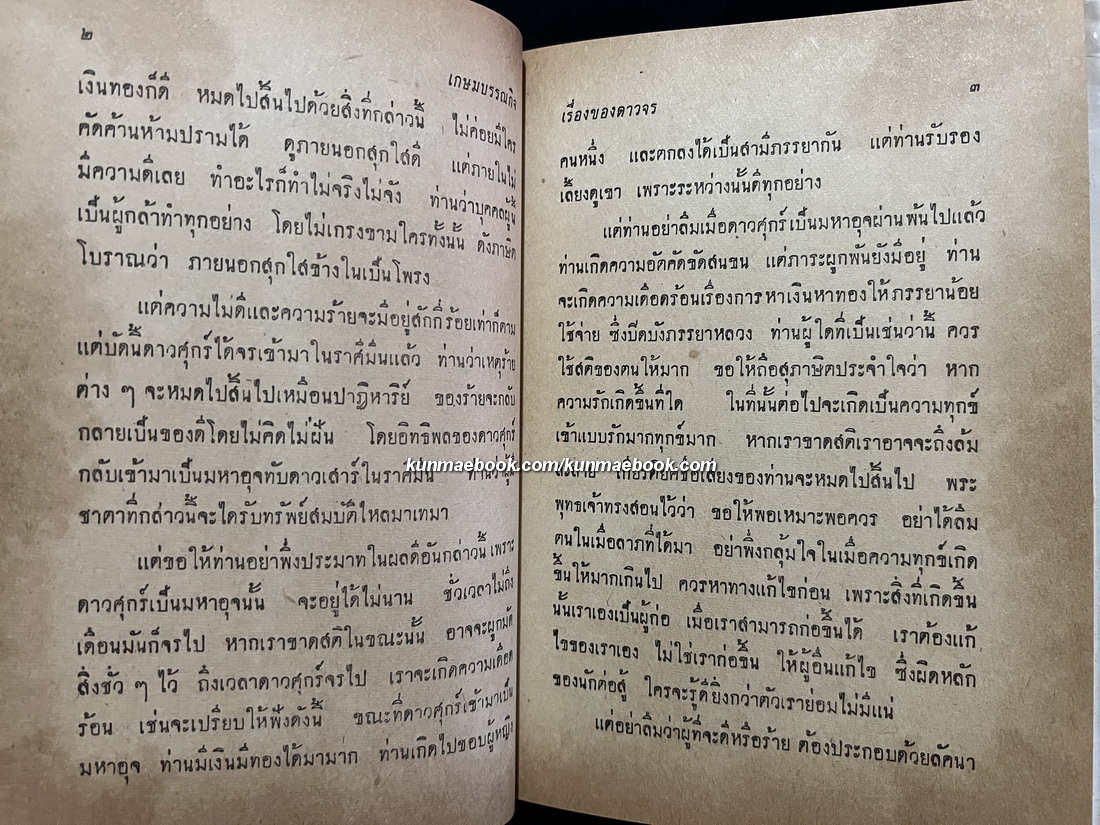 ๒
เกษมบรรณกิจ
เงินทองก็ดี หมดไปสิ้นไปด้วยสิ่งที่กล่าวนี้ ไม่ค่อยมีใคร
คัดค้านห้ามปรามได้ ดูภายนอกสุกใสดี แต่ภายในไม่
มีความดีเลย ทำอะไรก็ทำไม่จริงไม่จัง ท่านว่าบุคคลผู้นี้
เป็นผู้กล้าทำทุกอย่าง โดยไม่เกรงขามใครทั้งนั้น ดังภาษิต
โบราณว่า ภายนอกสุกใสข้างในเป็นโพรง
แต่ความไม่ดีและความร้ายจะมีอยู่สักกี่ร้อยเท่าก็ตาม
แต่บัดนี้ดาวศุกร์ได้จรเข้ามาในราศีมีนแล้ว ท่านว่าเหตุร้าย
ต่าง ๆ จะหมดไปสิ้นไปเหมือนปาฏิหาริย์ ของร้ายจะกลับ
กลายเป็นของดีโดยไม่คิดไม่ฝัน โดยอิทธิพลของดาวศุกร์
กลับเข้ามาเป็นมหาอุจทับดาวเสาร์ในราศีมีน ท่านว่าผู้มี
kunmaebook.com/kunmaebook.com
ชาตาที่กล่าวนี้จะได้รับทรัพย์สมบัติไหลมาเทมา
แต่ขอให้ท่านอย่าพึ่งประมาทในผลดีอันกล่าวนี้ เพราะ
ดาวศุกร์เป็นมหาอุจนั้น จะอยู่ได้ไม่นาน ชั่วเวลาไม่ถึง
เดือนมันก็จรไป หากเราขาดสติในขณะนั้น อาจจะผูกมัด
สิ่งชั่ว ๆ ไว้ ถึงเวลาดาวศุกร์จรไป เราจะเกิดความเดือด
ร้อน เช่นจะเปรียบให้ฟังดังนี้ ขณะที่ดาวศุกร์เข้ามาเป็น
มหาอุจ ท่านมีเงินมีทองได้มามาก ท่านเกิดไปชอบผู้หญิง
๓
เรื่องของดาวจร
คนหนึ่ง และตกลงได้เป็นสามีภรรยากัน แต่ท่านรับรอง
เลี้ยงดูเขา เพราะระหว่างนั้นดีทุกอย่าง
แต่ท่านอย่าลืมเมื่อดาวศุกร์เป็นมหาอุจผ่านพ้นไปแล้ว
ท่านเกิดความอัตคัดขัดสนขน แต่ภาระผูกพันยังมีอยู่ ท่าน
จะเกิดความเดือดร้อนเรื่องการหาเงินหาทองให้ภรรยาน้อย
ใช้จ่าย ซึ่งปิดบังภรรยาหลวง ท่านผู้ใดที่เป็นเช่นว่านี้ ควร
ใช้สติของตนให้มาก ขอให้ถือสุภาษิตประจำใจว่า หาก
ความรักเกิดขึ้นที่ใด ในที่นั้นต่อไปจะเกิดเป็นความทุกข์
เข้าแบบรักมากทุกข์มาก หากเราขาดสติเราอาจจะถึงล้ม
ละลาย เกียรติยศชื่อเสียงของท่านจะหมดไปสิ้นไป พระ
พุทธเจ้าทรงสอนไว้ว่า ขอให้พอเหมาะพอควร อย่าได้ลืม
ตนในเมื่อลาภที่ได้มา อย่าพึ่งกลุ้มใจในเมื่อความทุกข์เกิด
ขึ้นให้มากเกินไป ควรหาทางแก้ไขก่อน เพราะสิ่งที่เกิดขึ้น
นั้นเราเองเป็นผู้ก่อ เมื่อเราสามารถก่อขึ้นได้ เราต้องแก้
ไขของเราเอง ไม่ใช่เราก่อขึ้น ให้ผู้อื่นแก้ไข ซึ่งผิดหลัก
ของนักต่อสู้ ใครจะรู้ดียิ่งกว่าตัวเราย่อมไม่มีแน่
แต่อย่าลืมว่าผู้ที่จะดีหรือร้าย ต้องประกอบด้วยลัคนา